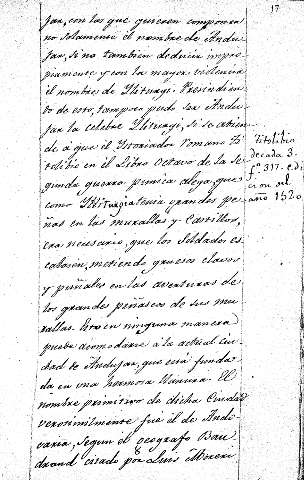 17
jar, con los que quieren componer
no solamente el nombre de Andu
jar, si no tambien deducir impro
piamente y con la mayor violencia
el nombre de Iliturgi. Prescindien
do de esto, tampoco pudo ser Andu
jar la celebre Iliturgi, si se atien
de á que el Istoriador Romano Ti
tolibio en el Libro Octavo de la Se
gunda guerra punica dize, que
como Illiturgia tenia grandes pe
ñas en las murallas y Castillos,
era necesario, que los Soldados es
calasen, metiendo gruesos clavos
y puñales en las aventuras de
los grandes peñascos de sus mu
rallas. Esto en ninguna manera
puede acomodarse á la actual Ciu
dad de Andujar, que está funda
da en una hermosa llanura. El
nombre primitivo de dicha Ciudad
verosimilmente fue él de Andu
varia, segun el Geografo Bau
drand citado por Luis Moreri
Titolibio
decada 3.
fº 317. edi
cion del
año 1520